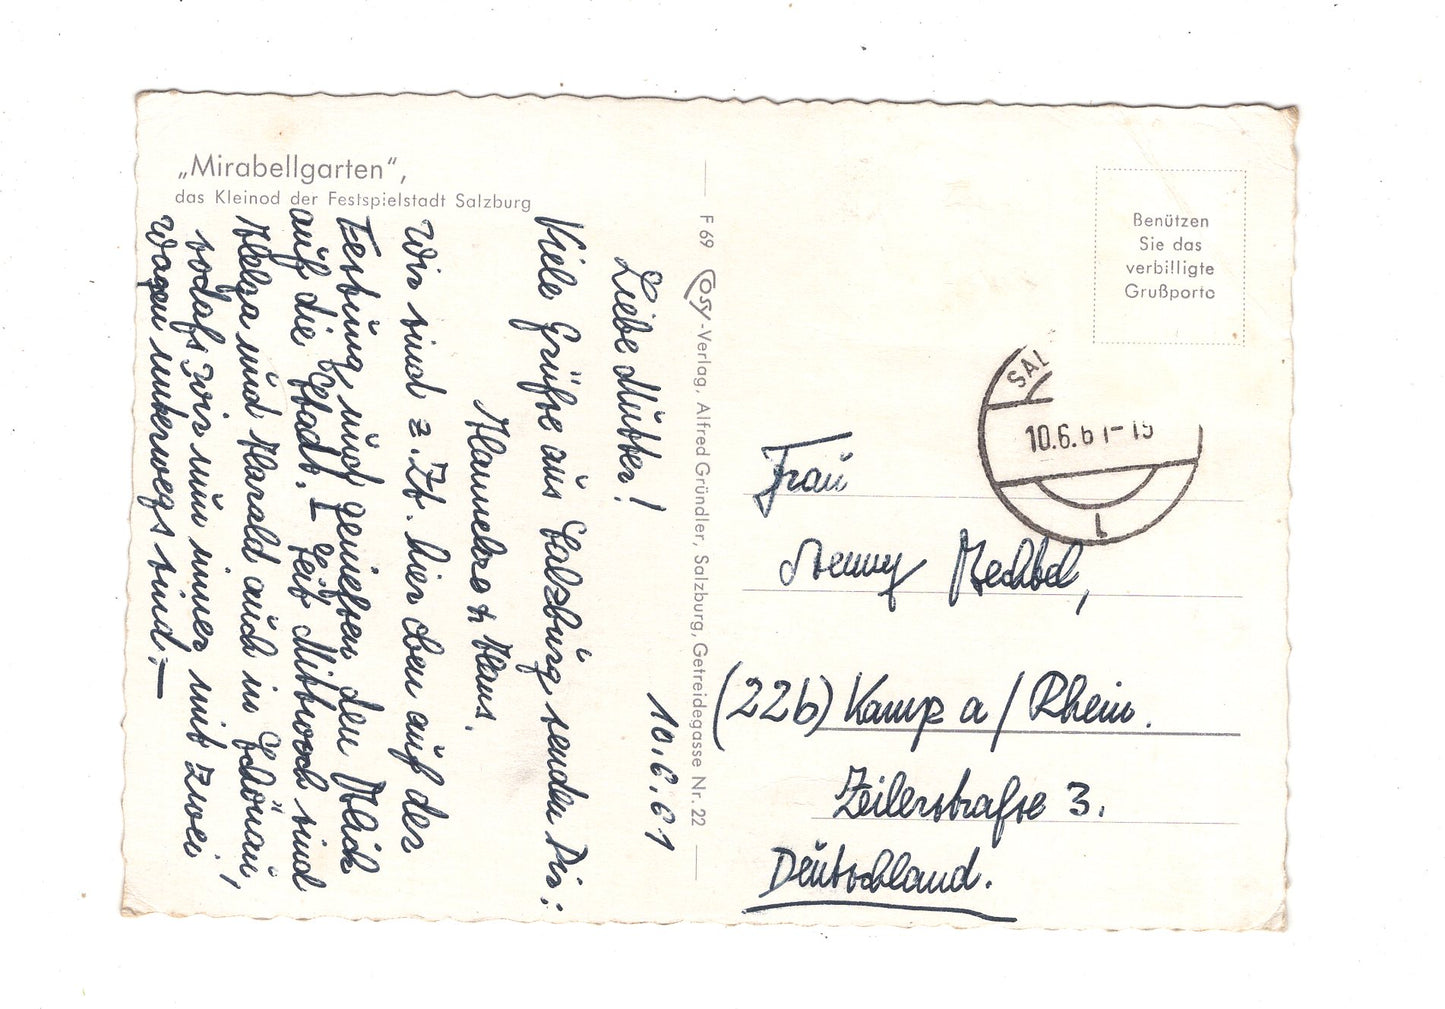 „Mirabellgarten“,
das Kleinod der Festspielstadt Salzburg
10.6.61
Liebe Mutter!
Viele Grüße aus Salzburg senden Dir:
Hannelore + Hans.
Wir sind z.Zt. hier oben auf der
Festung und genießen den Blick
auf die Stadt. – Seit Mittwoch sind
Helga und Harald auch in Schönau,
sodaß wir nun immer mit zwei
Wagen unterwegs sind. –
F 69 Cosy-Verlag, Alfred Gründler, Salzburg, Getreidegasse Nr. 22
Benützen
Sie das
verbilligte
Grußporto
SAL
10.6.61-15
1
Frau
Jenny
(22b) Kamp a/Rhein.
Zeilerstraße 3.
Deutschland.